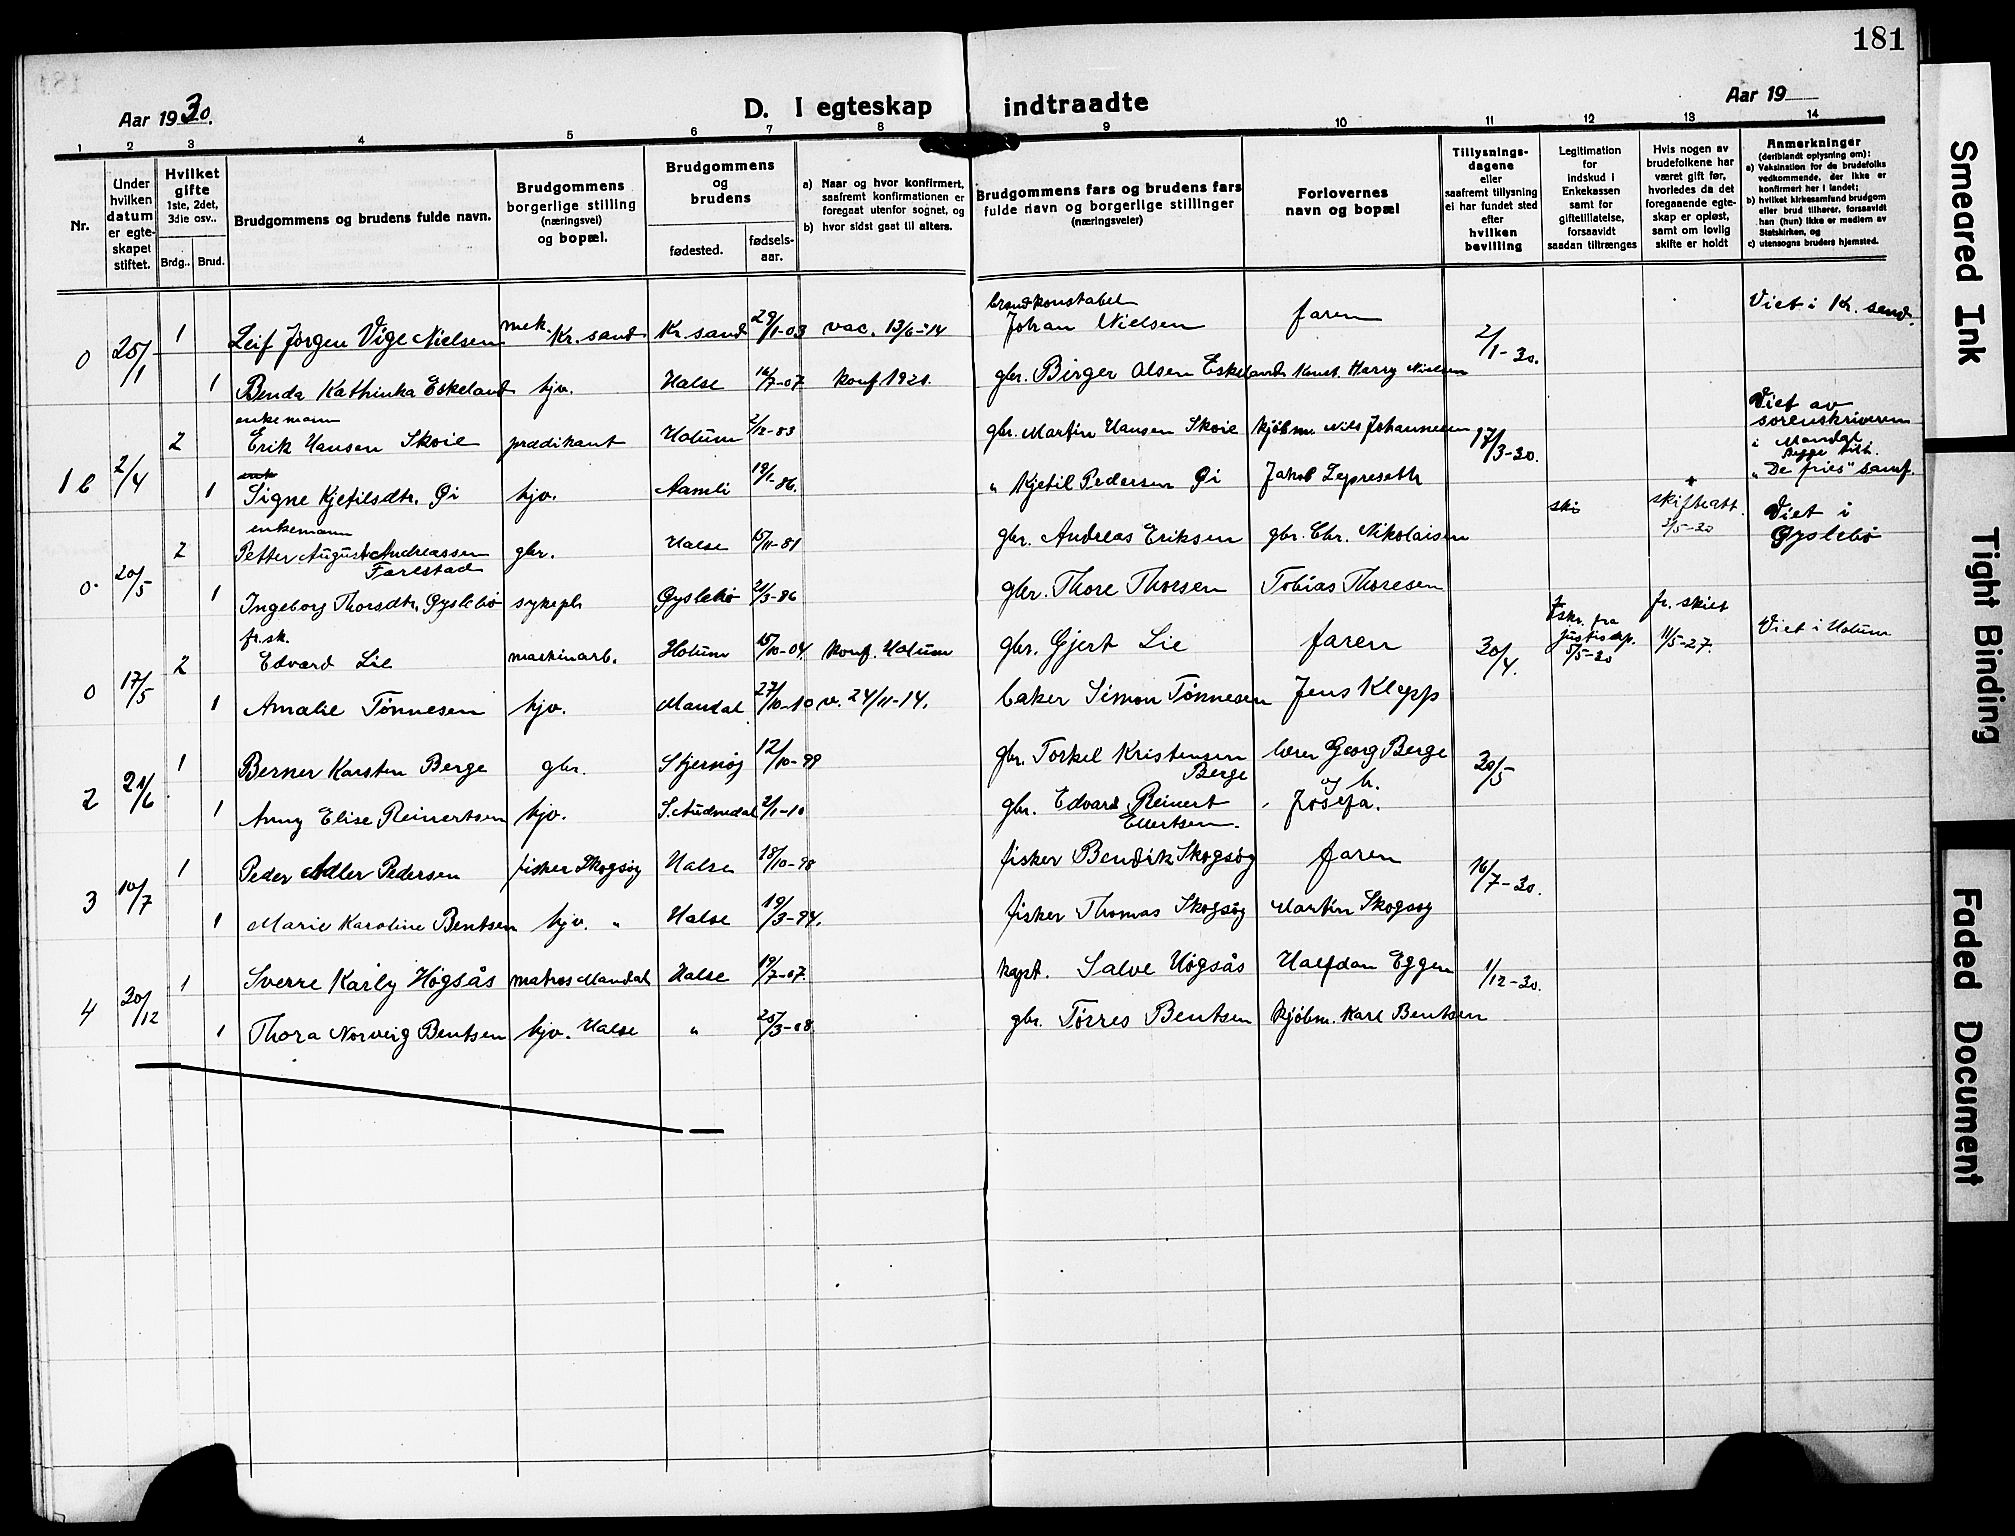 181
Aar 1930.
D. I egteskap indtraadte
Aar 19
1 2 3 4 5 6 7 8 9 10 11 12 13 14
Nr.
Under hvilken datum er egteskapet stiftet.
Hvilket gifte 1ste, 2det, 3die osv..
Brdg.. Brud.
Brudgommens og brudens fulde navn.
Brudgommens borgerlige stilling (næringsvei) og bopæl.
Brudgommens og brudens
fødested.
fødselsaar.
a) Naar og hvor konfirmert, saafremt konfirmationen er foregaat utenfor sognet, og
b) hvor sidst gaat til alters.
Brudgommens fars og brudens fars fulde navn og borgerlige stillinger (næringsveier)
Forlovernes navn og bopæl
Tillysningsdagene eller saafremt tillysning ei har fundet sted efter hvilken bevilling
Legitimation for indskud i Enkekassen samt for giftetillatelse, forsaavidt saadan tiltrænges
Hvis nogen av brudefolkene har været gift før, hvorledes da det foregaaende egteskap er opløst, samt om lovlig skifte er holdt
Anmerkninger (deriblandt oplysning om):
a) Vaksination for de brudefolks vedkommende, der ikke er konfirmert her i landet;
b) hvilket kirkesamfund brudgom eller brud tilhører, forsaavidt han (hun) ikke er medlem av Statskirken, og
c) utensogns bruders hjemsted.
0 25/1 1 Leif Jørgen Vige Nielsen mek. Kr.sand Kr.sand 29/1-03 vac. 13/6-14 brandkonstabel Johan Nielsen faren 2/1-30. Viet i Kr.sand.
1 Benda Kathinka Eskeland hjv. Halse 16/7-07 konf. 1921. gbr. Birger Olsen Eskeland Harry Nielsen
1 b 2/4 2 enkemann Erik Hansen Skoie prædikant Holum 2/12-83 gbr. Martin Hansen Skoie kjøbm. Nils Johannesen 17/3-30. Viet av sorenskriveren i Mandal. Begge tilh. "De fries" samf.
1 Signe Kjetilsdtr. Øi hjv. Aamli 19/1-86. " Kjetil Pedersen Øi Jakob Lepreseth
0 20/5 2 enkemann Petter August Andreassen Farestad gbr. Halse 15/11-81 gbr. Andreas Eriksen gbr. Chr. Nikolaisen ski skifteatt. 2/5-30 Viet i Øyslebø
1 Ingeborg Thorsdtr. Øyslebø sykepl. Øyslebø 21/3-86 gbr. Thore Thorsen Tobias Thoresen
0 17/5 2 fr.sk. Edvard Lie maskinarb. Holum 15/10-04 konf. Holum gbr. Gjert Lie faren 30/4. skr. fra justisdep. 5/5-30 fr. skilt 11/5-27. Viet i Holum
1 Amalie Tønnesen hjv. Mandal 27/10-10 v. 24/11-14. baker Simon Tønnesen Jens Klepp
2 21/6 1 Berner Karsten Berge gbr. Skjernøy 12/10-99 gbr. Torkel Kristensen Berge lærer Georg Berge og h. 30/5
1 Anny Elise Reinertsen hjv. S.Audnedal 2/1-10 gbr. Edvard Reinert Ellertsen. Josefa.
3 10/7 1 Peder Adler Pedersen fisker Skogsøy Halse 18/10-98 fisker Bendik Skogsøy faren 16/7-30.
1 Marie Karoline Bentsen hjv. " Halse 19/3-94. fisker Thomas Skogsøy Martin Skogsøy
4 30/12 1 Sverre Karly Høgsås matros Mandal Halse 19/7-07. kapt. Salve Høgsås Halfdan Eggen 1/12-30.
1 Thora Norveig Bentsen hjv. Halse " 25/3-08 gbr. Tørres Bentsen kjøbm. Karl Bentsen
Smeared Ink
Tight Binding
Faded Document